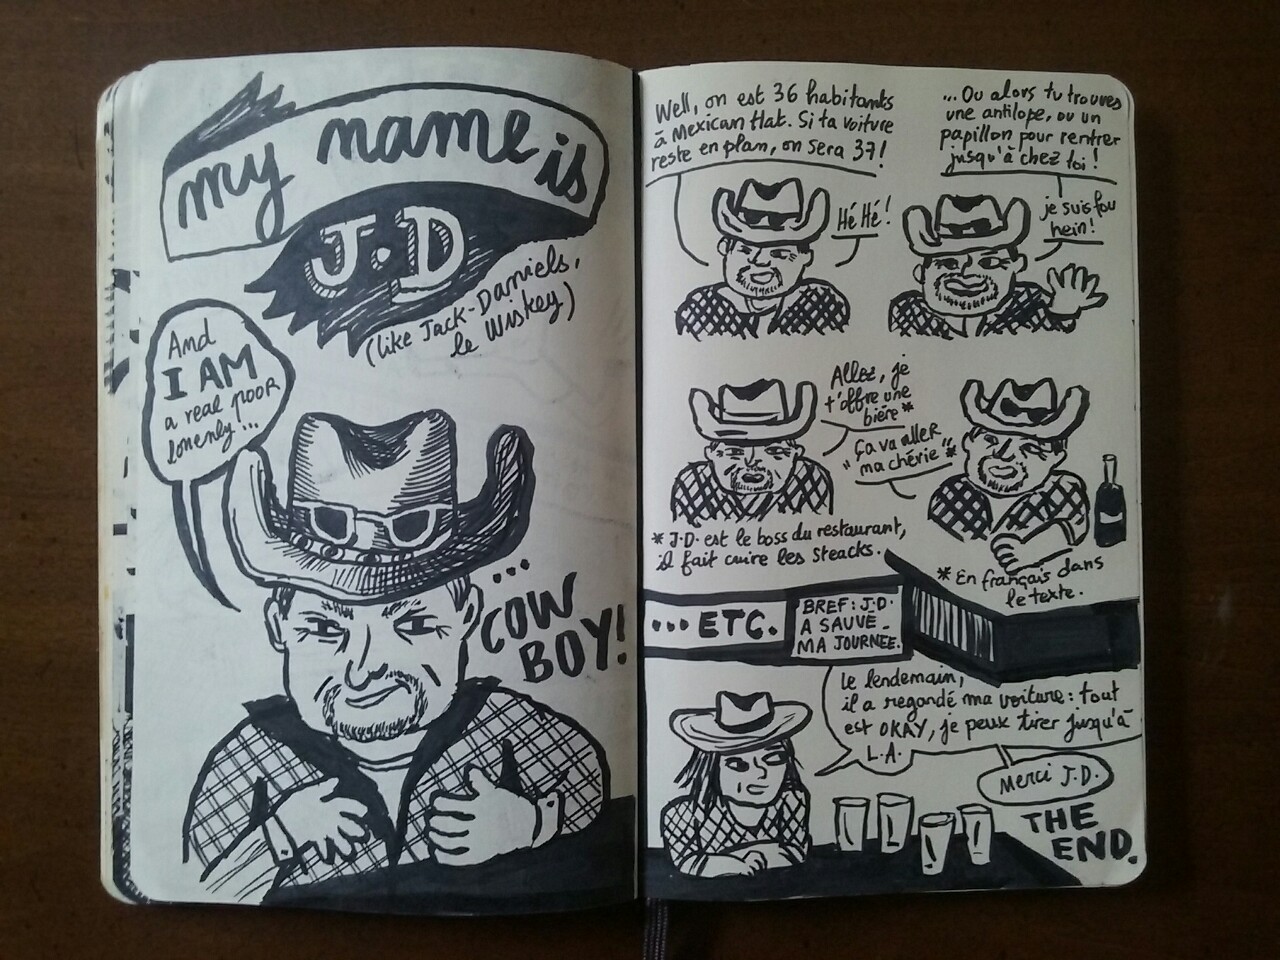 my name is
J.D
(like Jack-Daniels,
le Wiskey)
And
I AM
a real poor
lonenly...
...
COW
BOY!
Well, on est 36 habitants
à Mexican Hat. Si ta voiture
reste en plan, on sera 37!
Hé Hé!
... Ou alors tu trouves
une antilope, ou un
papillon pour rentrer
jusqu'à chez toi!
je suis fou
hein!
Allez, je
t'offre une
bière*
"ça va aller
ma chérie"*
* J.D. est le boss du restaurant,
il fait cuire les steacks.
* En français dans
le texte.
... ETC.
BREF: J.D.
A SAUVÉ
MA JOURNEE.
Le lendemain,
il a regardé ma voiture: tout
est OKAY, je peux tirer jusqu'à
L.A.
Merci J.D.
THE
END.